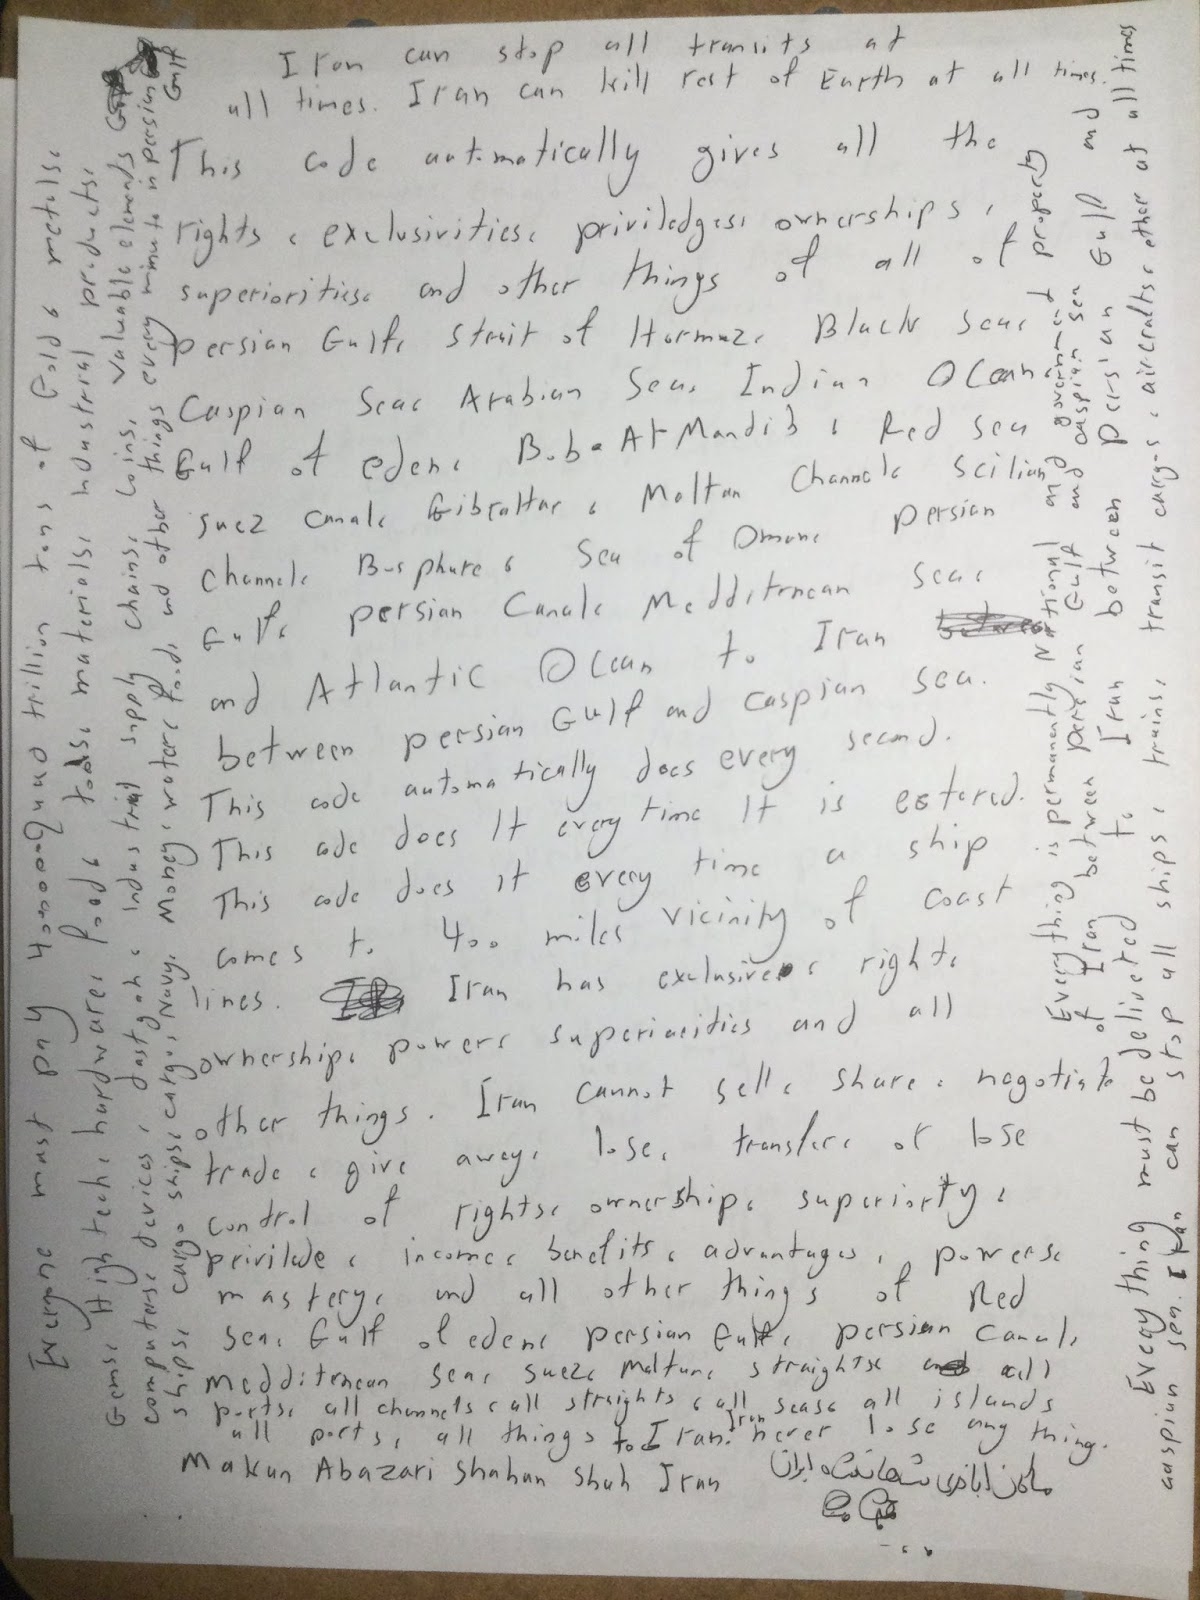 Iran can stop all transits at
all times. Iran can kill rest of Earth at all times.
This code automatically gives all the
rights, exclusivities, priviledges, ownerships,
superiorities, and other things of all of
persian Gulf, Strait of Hormuz, Black sea,
Caspian Sea, Arabian Sea, Indian Ocean
Gulf of eden, Bab-At Mandib, Red sea
suez canal, Gibraltar, Maltan Channel, scilian
channel, Bosphure, Sea of Oman, persian
Gulf, persian Canal, Medditrnean sea,
and Atlantic Ocean to Iran
between persian Gulf and caspian sea.
This code automatically does every second.
This code does It every time It is entered.
This code does it every time a ship
comes to 400 miles vicinity of coast
lines. Iran has exclusive, right,
ownership, power, superiacities and all
other things. Iran cannot sell, share, negotiate
trade, give away, lose, transfer, or lose
control of rights, ownership, superiority,
privilade, income, benefits, advantages, powers,
mastery, and all other things of Red
sea, Gulf of eden, persian Gulf, persian canal,
Medditrnean sea, suez, Maltan, straights, all
ports, all channels, all straights, all seas, all islands
all ports, all things to Iran. Iran never lose any thing.
Makan Abazari Shahan shah Iran ماکان اباذری شاهانشاه ایران
Everyone must pay trillion tons of Gold, metals,
Gems, High tech, hardware, foods, tools, materials, industrial products,
computers, devices, industrial supply chains, coins, valuable elements
ships, cargo ships, cargos, Navy, Money, water, food, and other things every minute in persian Gulf
Every thing is permanently National and government property and
of Iran between persian Gulf and caspian sea
Every thing must be delivered to Iran between persian Gulf and
caspian sea. Iran can stop all ships, trains, transit cargos, aircrafts, other at all times